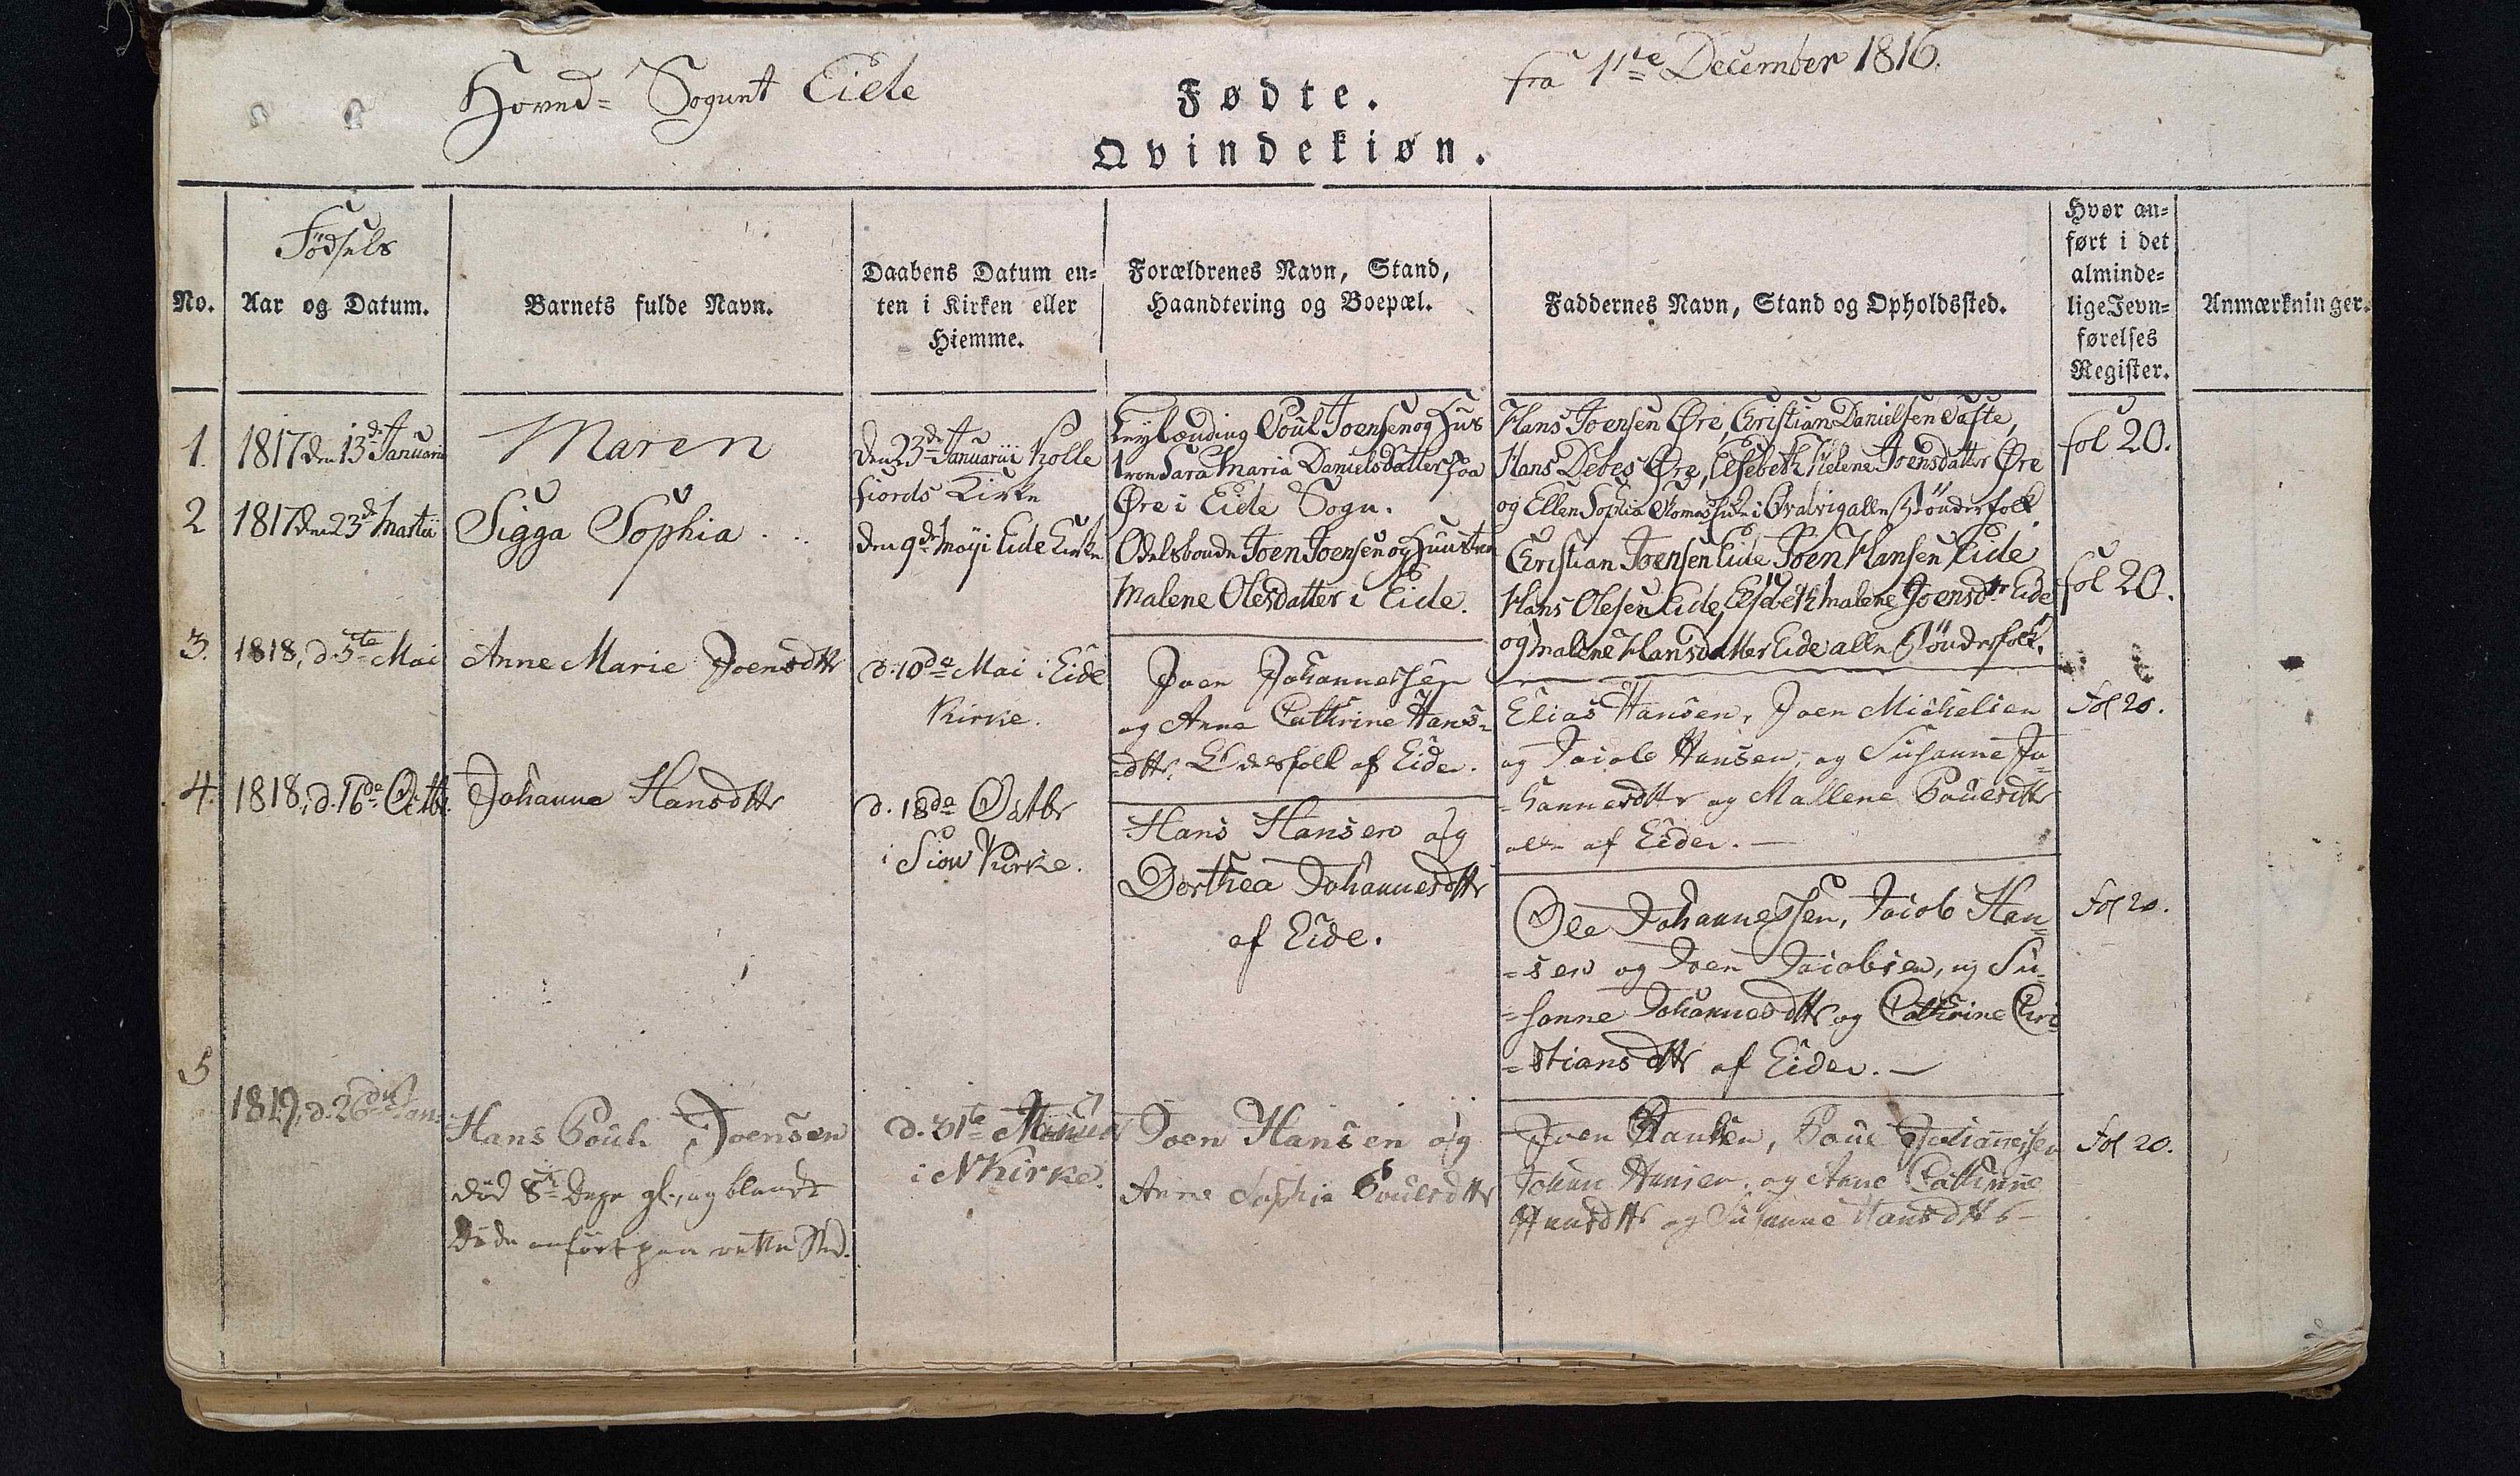 Hoved= Sognet Eide
Fødte.
fra 11te December 1816.
Qvindekiøn.
No.
Fødsels
Aar og Datum.
Barnets fulde Navn.
Daabens Datum en=
ten i Kirken eller
Hiemme.
Forældrenes Navn, Stand,
Haandtering og Boepæl.
Faddernes Navn, Stand og Opholdssted.
Hvor an=
ført i det
alminde=
lige Jevn=
førelses
Register.
Anmærkninger.
1.
1817 den 13de Januarii
Maren
den 23de Januarii Kolle
fiords Kirke
Leylænding Poul Joensen og Hus
troe Sara Maria Danielsdatter paa
Øre i Eide Sogn.
Hans Joensen Øre, Christian Danielsen
Hans Debes Øre, Elsebeth Helene Joensdatter Øre
og Ellen Sophia i Qvalvig alle Bönderfolk
fol 20.
2
1817 den 23de Martii
Sigga Sophia
den 9de Maji Eide Kirke
Odelsbonde Joen Joensen og Huustroe
Malene Olesdatter i Eide.
Christian Joensen Eide Joen Hansen Eide
Hans Olesen Eide, Elsebeth Malene Joensdtr Eide
og Malene Hansdatter Eide alle Bönderfolk.
fol 20.
3.
1818, d. 5te Mai
Anne Marie Joensdtr
d. 10de Mai i Eide
Kirke.
Joen Johannessen
og Anne Cathrine Hans=
=dtr. af Eide.
Elias Hansen, Joen Michelsen
og Jacob Hansen, og Susanne Jo=
=hannesdtr og Mallene Poulsdtr
alle af Eide. —
fol 20.
4.
1818, d. 16de Octbr.
Johanne Hansdtr
d. 18de Octbr
i Sion Kirke.
Hans Hansen og
Dorthea Johannesdtr
af Eide.
Ole Johannessen, Jacob Han=
=sen og Joen Jacobsen, og Su=
=sanne Johannesdtr og Cathrine Chri=
=stiansdtr af Eide. —
fol 20.
5
1819, d. 26de Jan:
Hans Poul Joensen
död 8te Dage gl., og blandt
Döde anfört paa rette Sted.
d. 31te Januar
i N Kirke.
Joen Hansen og
Anne Sophie Poulsdtr
Joen Hansen, Poul Johannessen
Johan Hansen, og Anne Cathrine
Hansdtr og Susanne Hansdtr
fol 20.